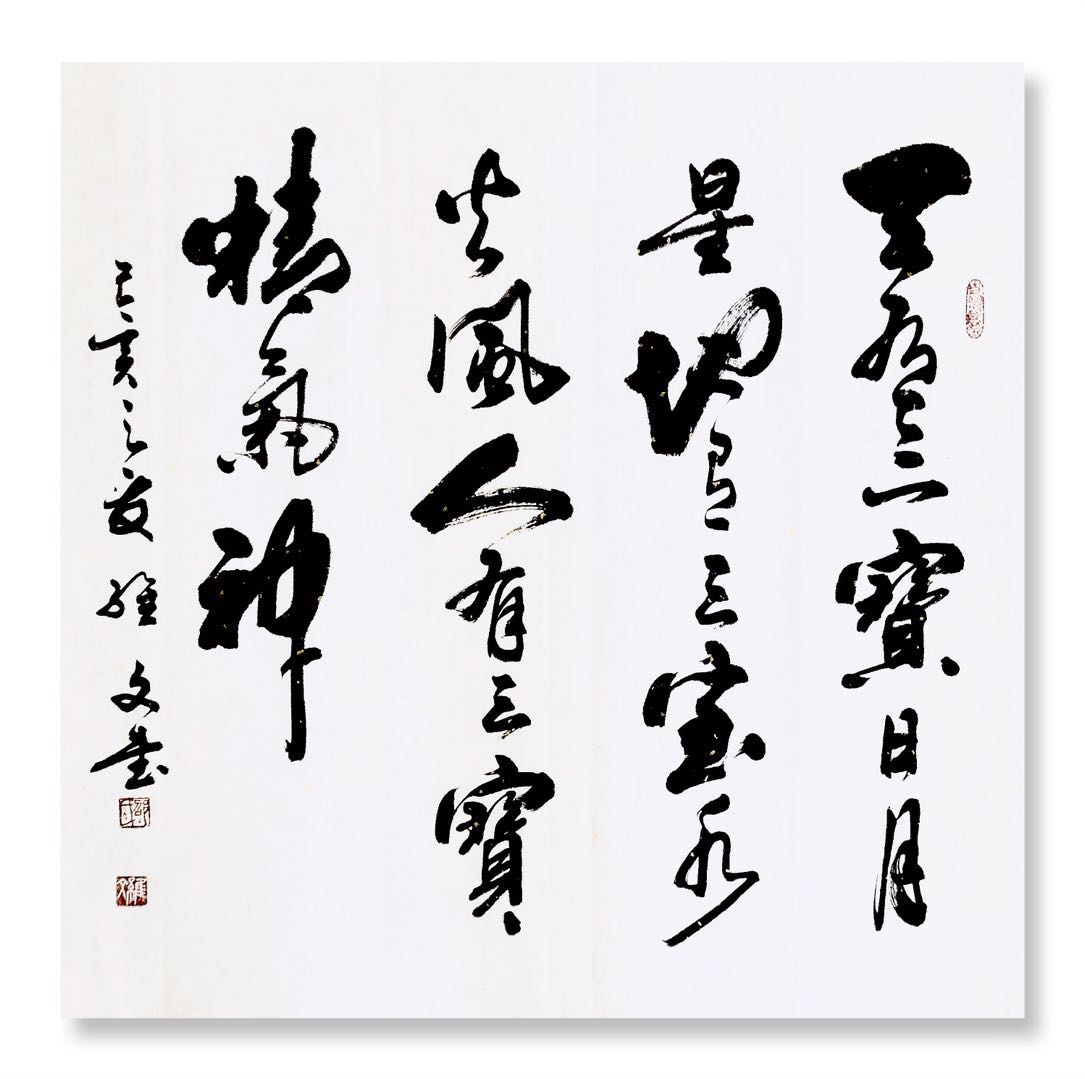 天有三寶日月
星地有三宝水
火風人有三寶
精氣神
己亥之夏 維文書
維文